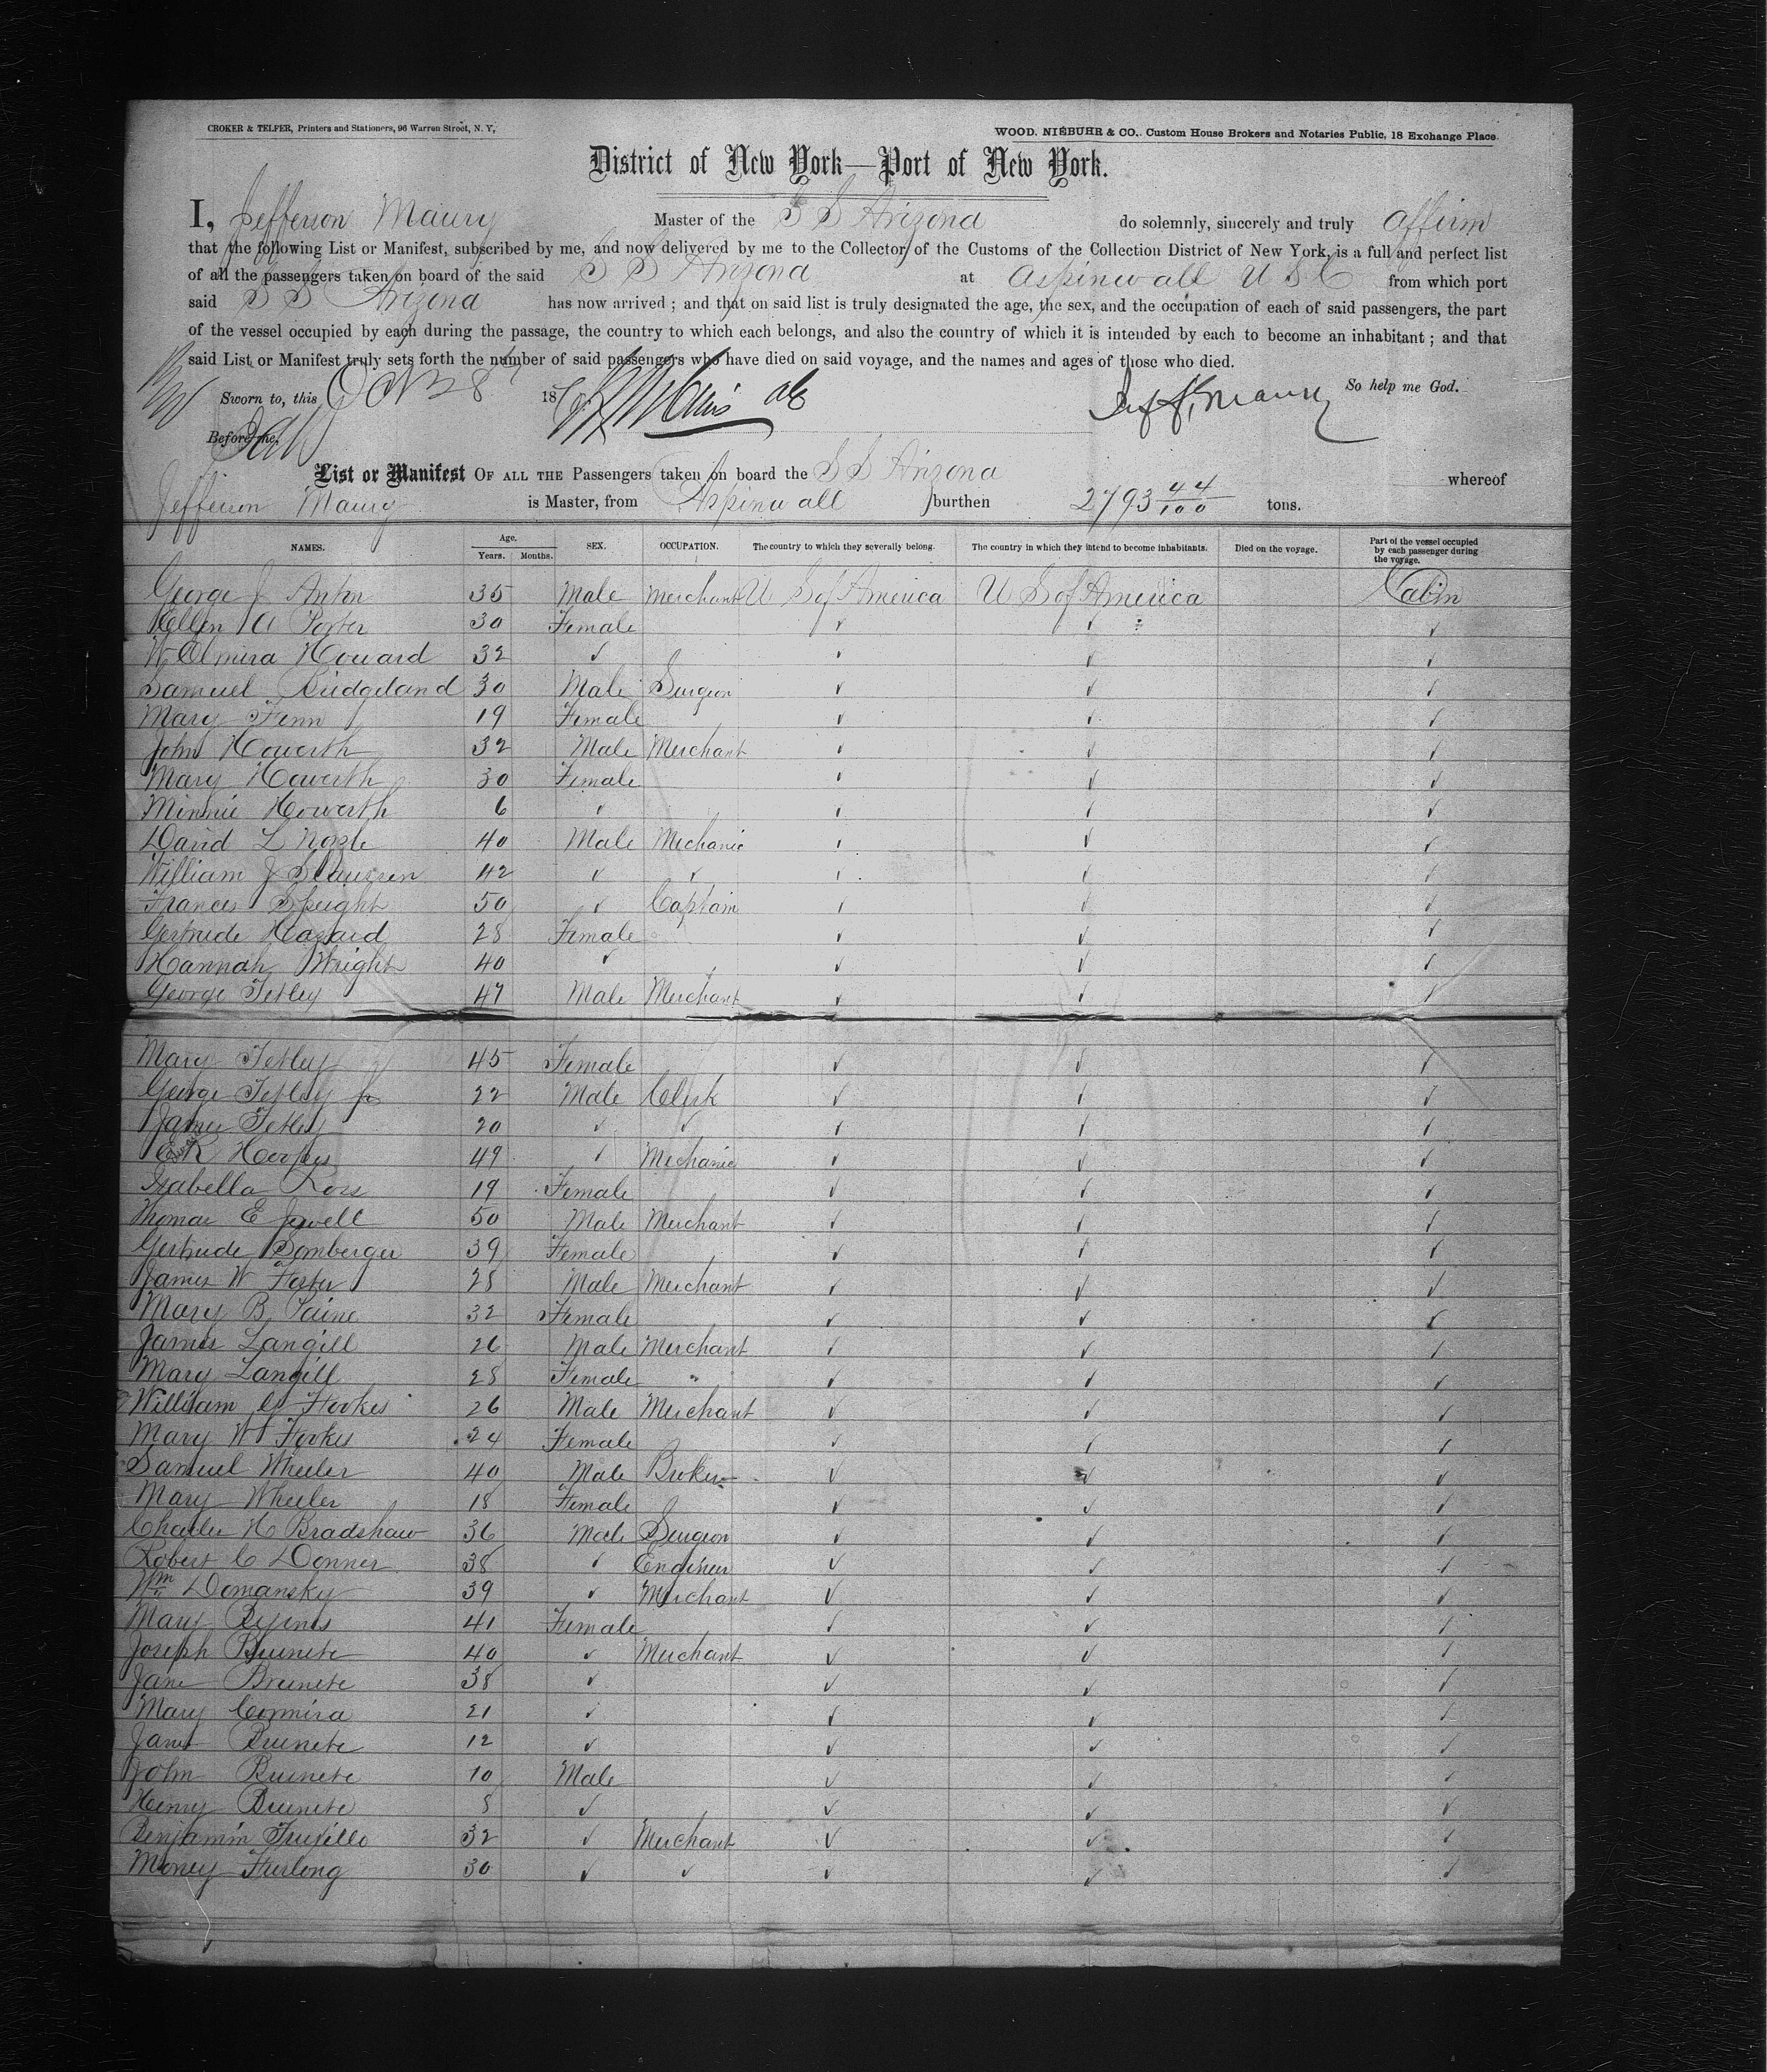 CROKER & TELFER, Printers and Stationers, 96 Warren Street, N. Y.
WOOD, NIEBUHR & CO., Custom House Brokers and Notaries Public, 18 Exchange Place.
District of New York—Port of New York.
I, Jefferson Maury Master of the S S Arizona do solemnly, sincerely and truly affirm
that the following List or Manifest, subscribed by me, and now delivered by me to the Collector of the Customs of the Collection District of New York, is a full and perfect list
of all the passengers taken on board of the said S S Arizona at Aspinwall U S C from which port
said S S Arizona has now arrived; and that on said list is truly designated the age, the sex, and the occupation of each of said passengers, the part
of the vessel occupied by each during the passage, the country to which each belongs, and also the country of which it is intended by each to become an inhabitant; and that
said List or Manifest truly sets forth the number of said passengers who have died on said voyage, and the names and ages of those who died.
So help me God.
Sworn to, this Oct 28 18 Jeff. Maury
Before me,
List or Manifest OF ALL THE Passengers taken on board the S S Arizona whereof
Jefferson Maury is Master, from Aspinwall burthen 2793 44/100 tons.
NAMES. Age. Years. Months. SEX. OCCUPATION. The country to which they severally belong. The country in which they intend to become inhabitants. Died on the voyage. Part of the vessel occupied by each passenger during the voyage.
George J 35 Male Merchant U S of America U S of America Cabin
Ellen A Porter 30 Female ✓ ✓ ✓
W Elmira Howard 32 ✓ ✓ ✓ ✓
Samuel Bridgeland 30 Male Surgeon ✓ ✓ ✓
Mary Fenn 19 Female ✓ ✓ ✓
John Howerth 32 Male Merchant ✓ ✓ ✓
Mary Howerth 30 Female ✓ ✓ ✓
Minnie Howerth 6 ✓ ✓ ✓ ✓
David L Nogle 40 Male Mechanic ✓ ✓ ✓
William J 42 ✓ ✓ ✓ ✓ ✓
Frances Speight 50 ✓ Captain ✓ ✓ ✓
Gertrude Hazard 28 Female ✓ ✓ ✓
Hannah Wright 40 ✓ ✓ ✓ ✓
George Tetley 47 Male Merchant ✓ ✓ ✓
Mary Tetley 45 Female ✓ ✓ ✓
George Tetley Jr 22 Male Clerk ✓ ✓ ✓
James Tetley 20 ✓ ✓ ✓ ✓ ✓
49 ✓ Mechanic ✓ ✓ ✓
Isabella Ross 19 Female ✓ ✓ ✓
Thomas E Jewell 50 Male Merchant ✓ ✓ ✓
Gertrude Somberger 39 Female ✓ ✓ ✓
James W Foster 28 Male Merchant ✓ ✓ ✓
Mary B Paine 32 Female ✓ ✓ ✓
James Langill 26 Male Merchant ✓ ✓ ✓
Mary Langill 28 Female " ✓ ✓ ✓
William C Fookes 26 Male Merchant ✓ ✓ ✓
Mary W Fookes 24 Female ✓ ✓ ✓
Samuel Wheeler 40 Male Broker ✓ ✓ ✓
Mary Wheeler 18 Female ✓ ✓ ✓
Charles H Bradshaw 36 Male Surgeon ✓ ✓ ✓
Robert C Donner 38 ✓ Engineer ✓ ✓ ✓
Wm Domansky 39 ✓ Merchant ✓ ✓ ✓
Mary Byrnes 41 Female ✓ ✓ ✓
Joseph Brunete 40 ✓ Merchant ✓ ✓ ✓
Jane Brunete 38 ✓ ✓ ✓ ✓
Mary Cormira 21 ✓ ✓ ✓ ✓
Janet Brunete 12 ✓ ✓ ✓ ✓
John Brunete 10 Male ✓ ✓ ✓
Henry Brunete 8 ✓ ✓ ✓ ✓
Benjamin Truxillo 32 ✓ Merchant ✓ ✓ ✓
Money Furlong 30 ✓ ✓ ✓ ✓ ✓